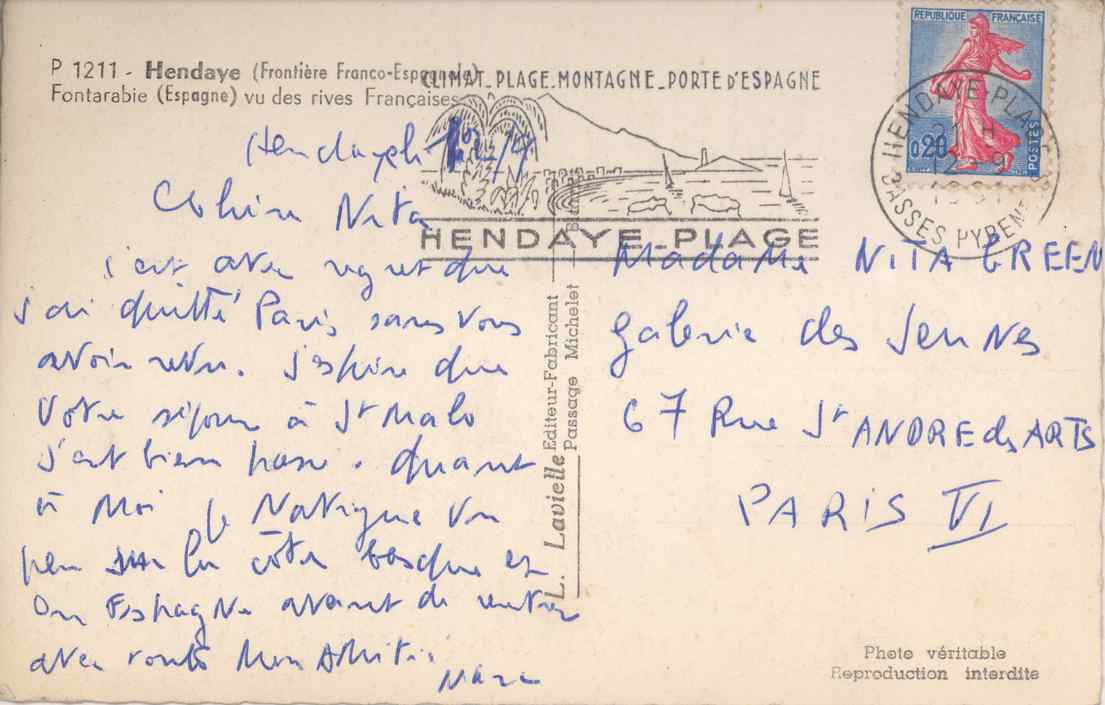 P 1211 - Hendaye (Frontière Franco-Espagnole)
Fontarabie (Espagne) vu des rives Françaises
CLIMAT_PLAGE_MONTAGNE_PORTE D'ESPAGNE
HENDAYE_PLAGE
REPUBLIQUE FRANÇAISE
0,20
POSTES
HENDAYE-PLAGE
BASSES PYRENEES
Nita
c'est avec regret que
j'ai quitté Paris sans vous
avoir revu. J'espère que
votre séjour à St Malo
s'est bien passé. Quant
à moi je navigue un
peu sur la côte basque et
en Espagne avant de rentrer
avec toutes mes amitiés
Marc
L. Lavielle
Editeur-Fabricant
Passage Michelet
Madame NITA GREEN
Galerie des Jeunes
67 Rue St ANDRE des ARTS
PARIS VI
Photo véritable
Reproduction interdite